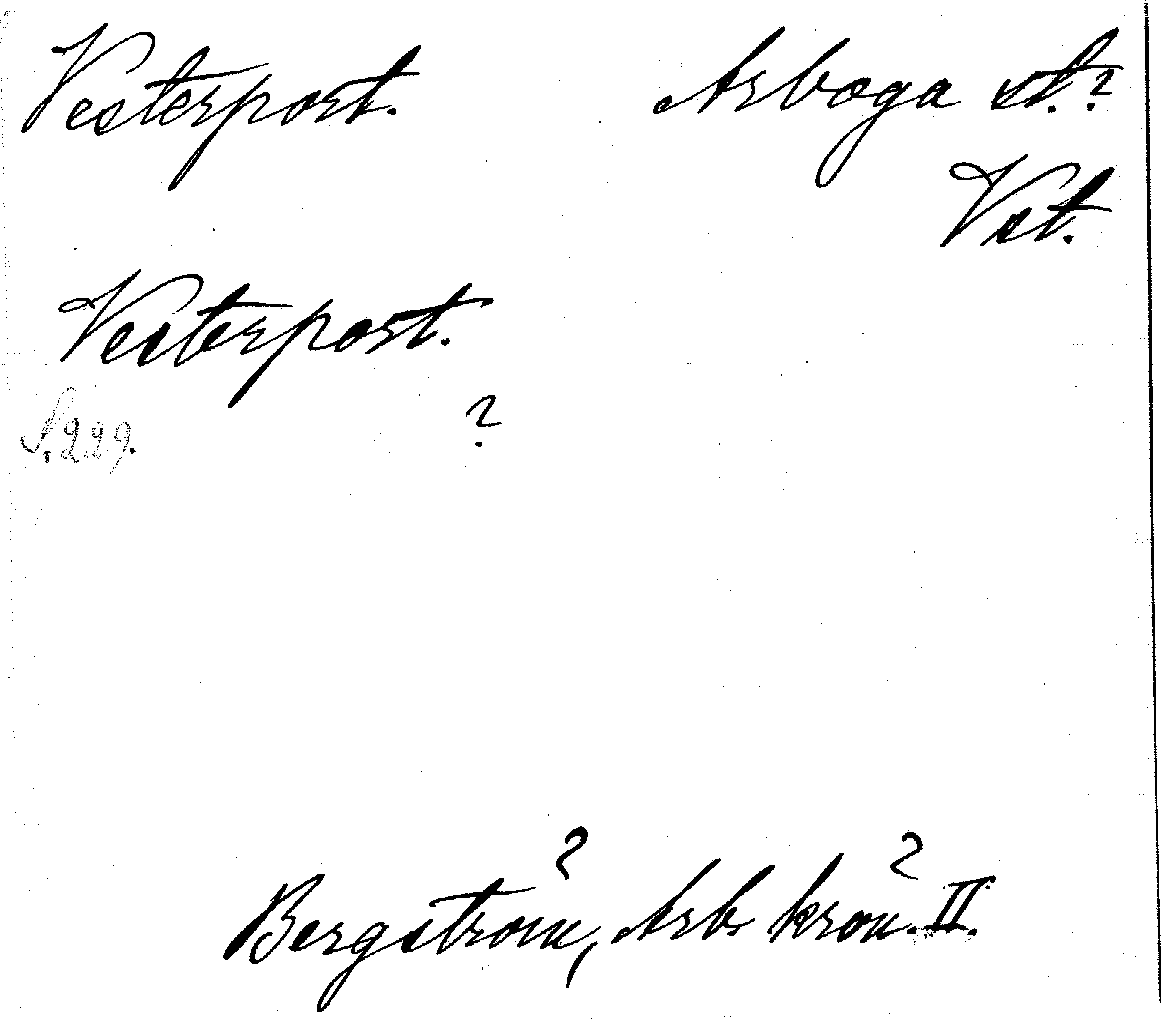 Vesterport. Arboga st.?
Vst.
Vesterport.
S. 229. ?
Bergström, Arb. krön. II.